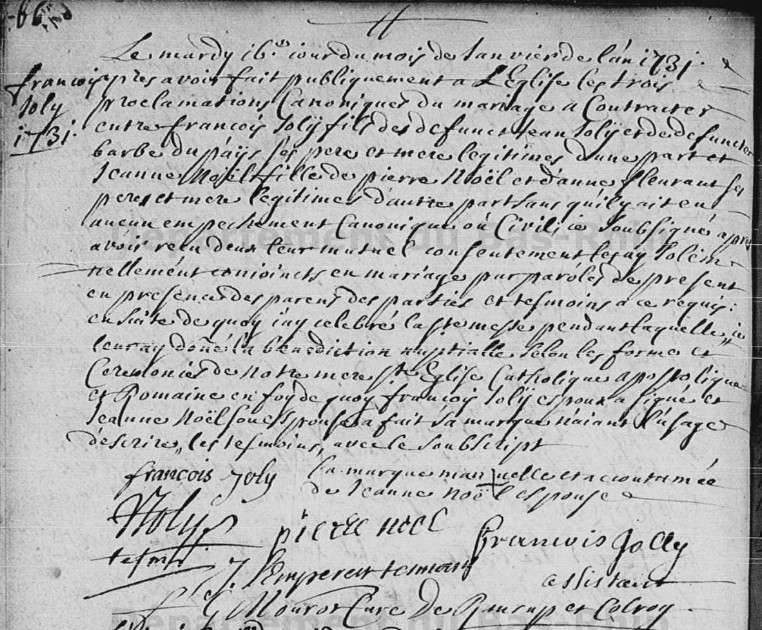 Le mardy 16e iour du mois de Ianvier de l'an 1731.
francois Ioly 1731.
apres avoir fait publiquement a L'Eglise les trois
proclamations Canoniques du mariage a Contracter
entre francois Iolÿ fils des defunct Iean Iolÿ et de defuncte
barbe du païs ses pere et mere legitimes d'une part et
Ieanne Noël fille de pierre Noël et d'anne fleurant ses
peres et mere legitimes d'autre part sans qu'il y ait eu
aucun empechement Canonique où Civil ie Soubsigné apres
avoir reçu deux leur mutuel consentement les ay Solem
nellemént conioincts en mariage par paroles de present
en presence des parens des parties et tesmoins a ce requis:
ensuite de quoy i'ay celebré la ste messe pendant laquelle ie
leur ay doñé la benediction nuptialle selon les forme et
Ceremonies de Notre mere ste Eglise Catholique apostolique
et Romaine en foy de quoy francois Iolÿ espoux a signe et
Ieanne Noël son espouse a fait sa marque n'aiant l'usage
d'escrire, les tesmoins, avec le soubscript
francois Joly
la marque manuelle et accoutumée
de Ieanne Noël espouse
N Joly
tesmoin
pierre noel
francois Jolly
assistant
J. Lempereur temoin
Mourot Cure De Ranrup et Colroy
Département du Bas-Rhin